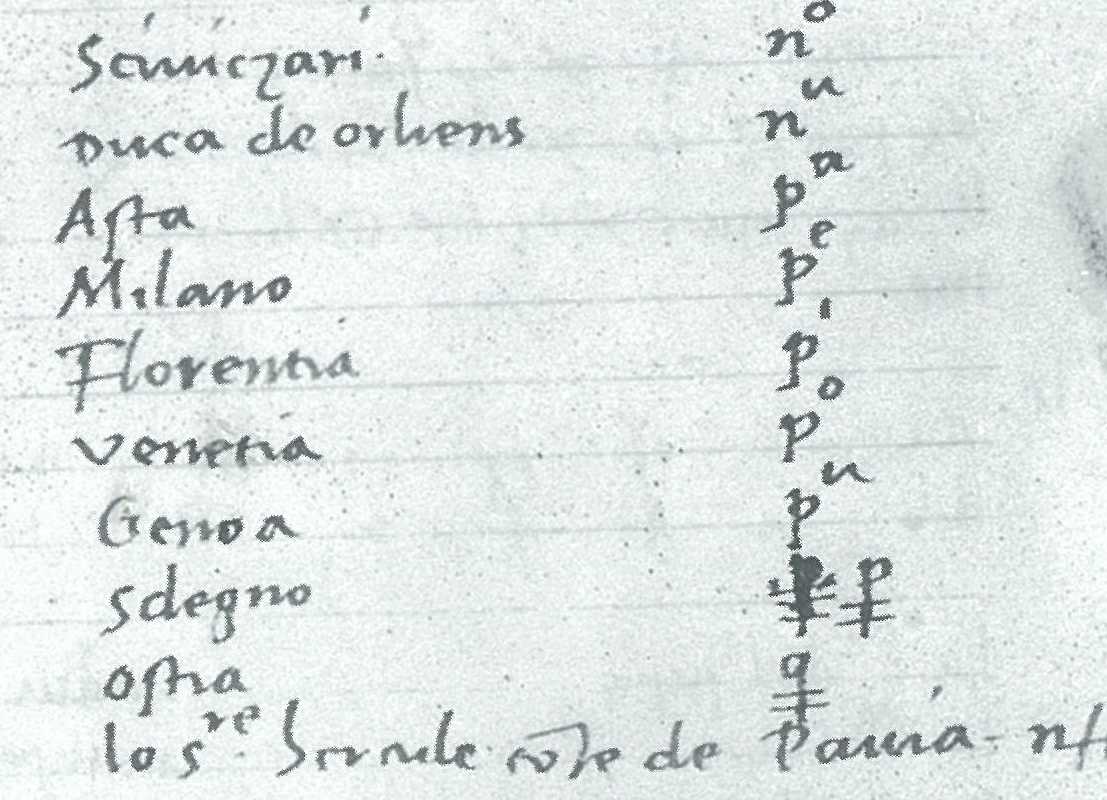 Sciniczari. n o
Duca de orliens n u
Asta p a
Milano p e
Florentia p i
Venetia p o
Genoa p u
Sdegno p
Ostia q
lo s re de Pauia